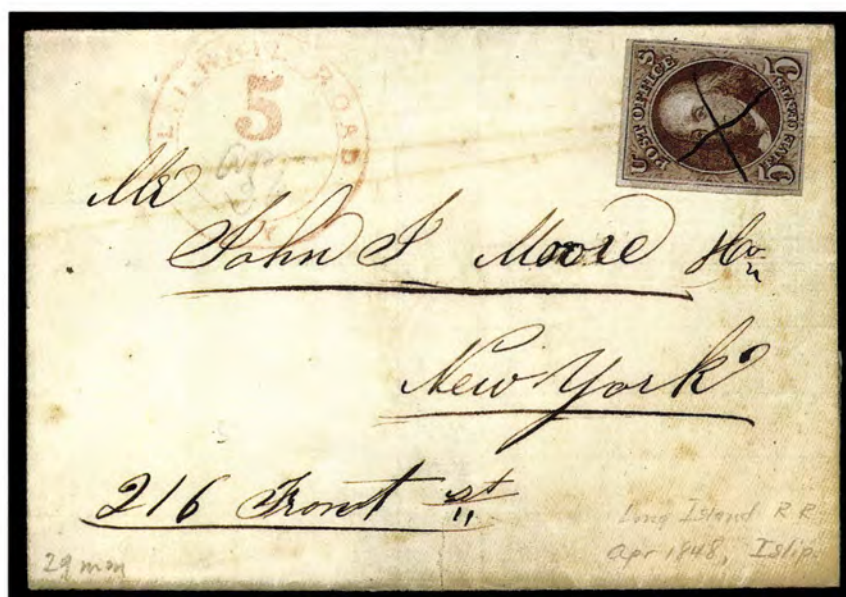 L.I. RAIL ROAD
5
U S
POST OFFICE
FIVE CENTS
5 5
Mr
John I Moore
New York
216 Front st
Long Island R R
Apr 1848, Islip.
29 mon